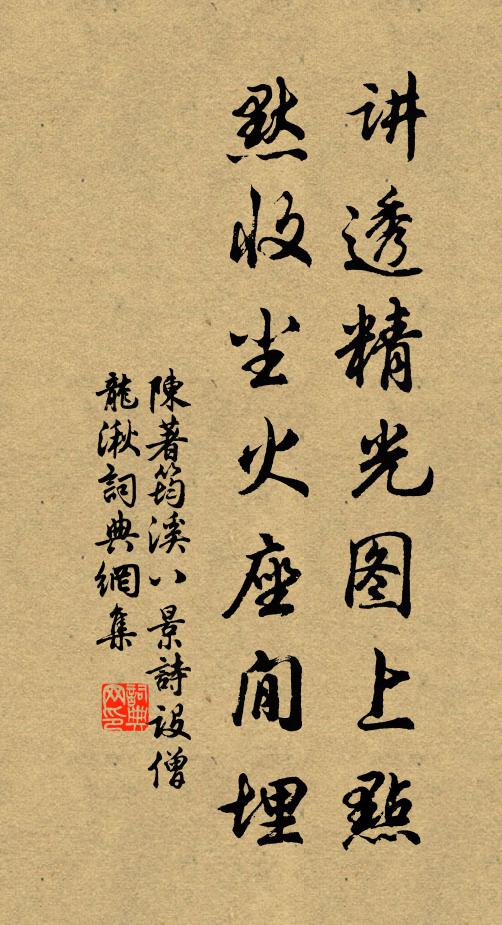 讲透精光图上點
默收尘火座间埋
陳著筠溪八景詩設僧
龍湫詞典網集
詞典网印